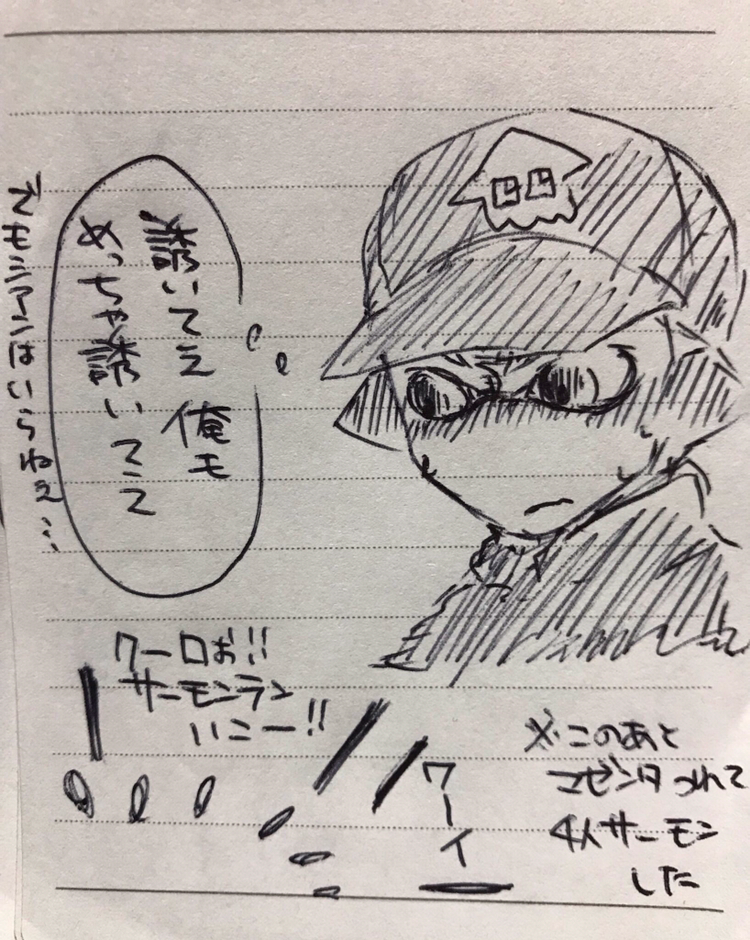 誘いてえ 俺モ
めっちゃ誘いてえ
でもシアンはいらねえ…
クーロぉ!!
サーモンラン
いこー!!
ワーイ
※このあと
マゼンタつれて
4人サーモン
した